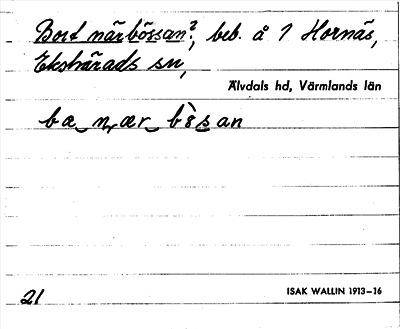 Bort närbössan?, beb. å 1 Hornäs,
Ekshärads sn,
Älvdals hd, Värmlands län
ba nær bòsan
21
ISAK WALLIN 1913-16